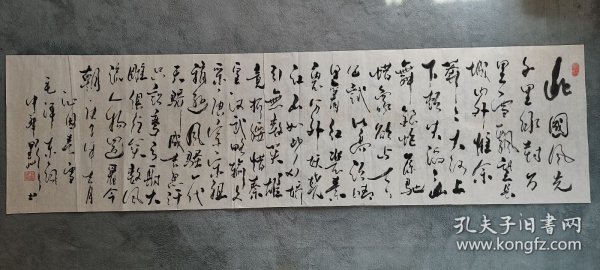 北國風光
千里冰封万
里雪飄望長
城内外惟余
莽莽大河上
下頓失滔滔山
舞銀蛇原馳
蜡象欲与天
公試比高須晴
日看红装素
裹分外妖娆
江山如此多娇
引無數英雄
竞折腰惜秦
皇漢武略輸文
采唐宗宋祖
稍遜風騷一代
天驕成吉思汗
只識弯弓射大
雕俱往矣數風
流人物還看今
朝
沁园春雪
毛澤東詞
中華
孔夫子旧书网
www.kongfz.com